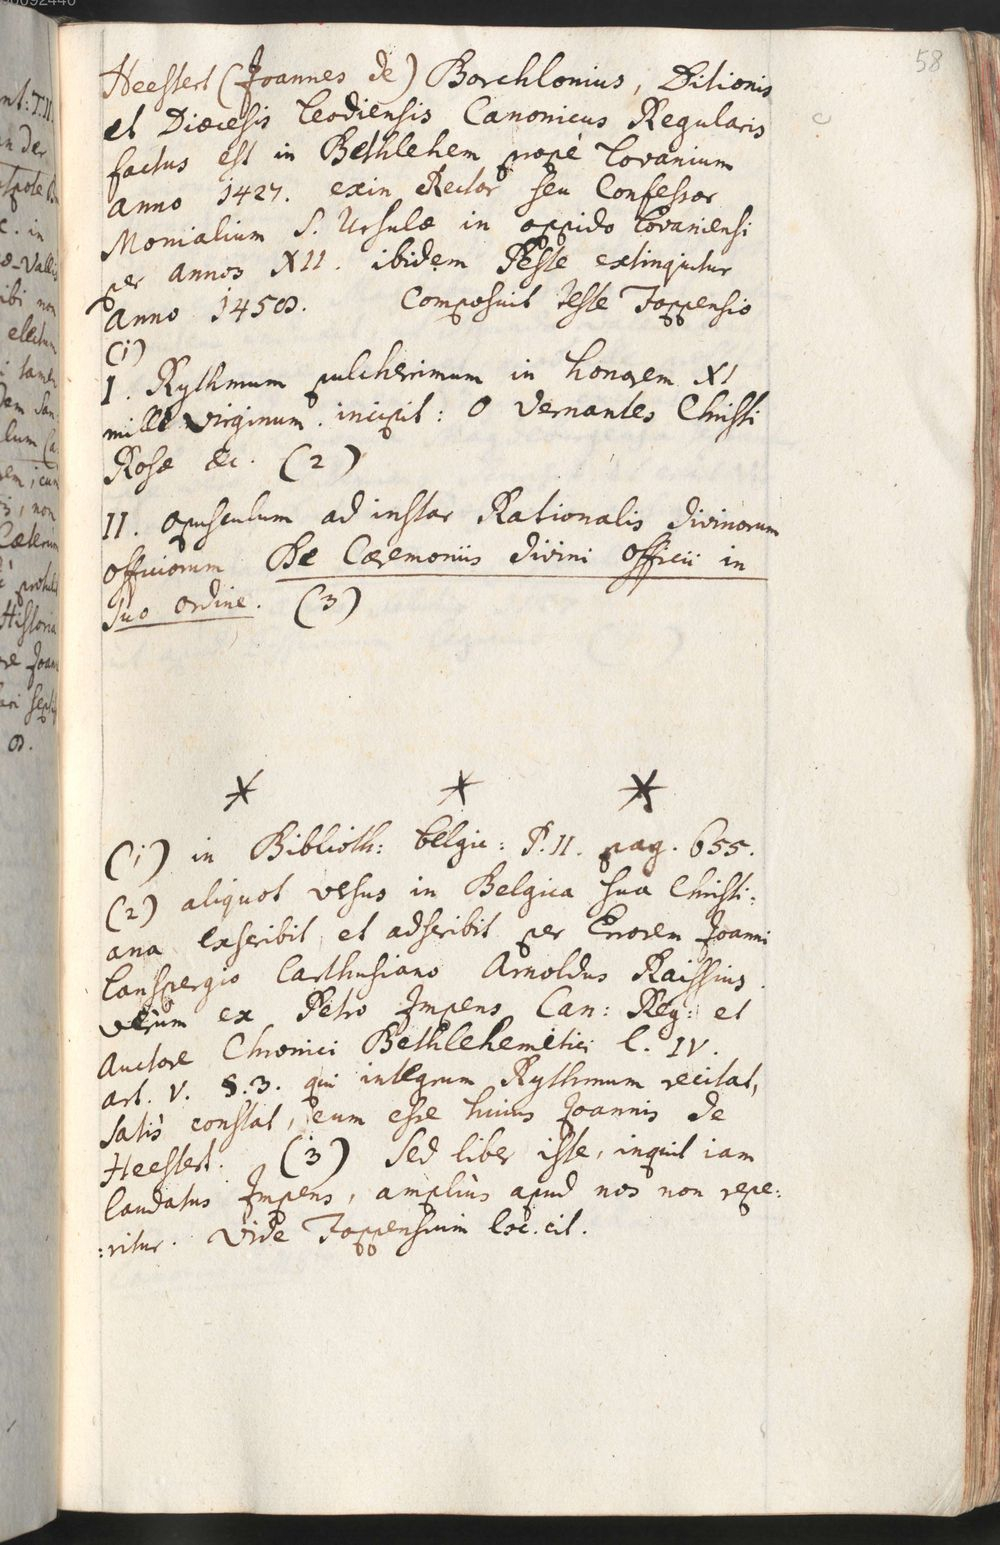 58
Heestert (Joannes de) Borchlonius, Ditionis
et Dioecesis Leodiensis Canonicus Regularis
factus est in Bethlehem propè Lovanium
anno 1427. exin Rector seu Confessor
Monialium S. Ursulæ in oppido Lovaniensi
per annos XII. ibidem Peste extinguitur
anno 1458. Composuit teste Foppensio
(1)
I. Rythmum pulcherrimum in honorem XI
mille virginum. incipit: O Vernantes Christi
Rosæ &c. (2)
II. opusculum ad instar Rationalis divinorum
officiorum De Cæremoniis divini officii in
suo ordine. (3)
(1) in Biblioth: belgic: P. II. pag. 655.
(2) aliquot versus in Belgica sua Christi:
ana exscribit, et adscribit per Errorem Joanni
Lanspergio Carthusiano Arnoldus Raissius.
verùm ex Petro Impens Can: Reg: et
Auctore Chronici Bethlehemitici l. IV.
art. V. §. 3. qui integrum Rythmum recitat,
satis constat, eum esse huius Joannis de
Heestert. (3) Sed liber iste, inquit iam
laudatus Impens, ampliùs apud nos non repe:
:ritur. Vide Foppensium loc. cit.